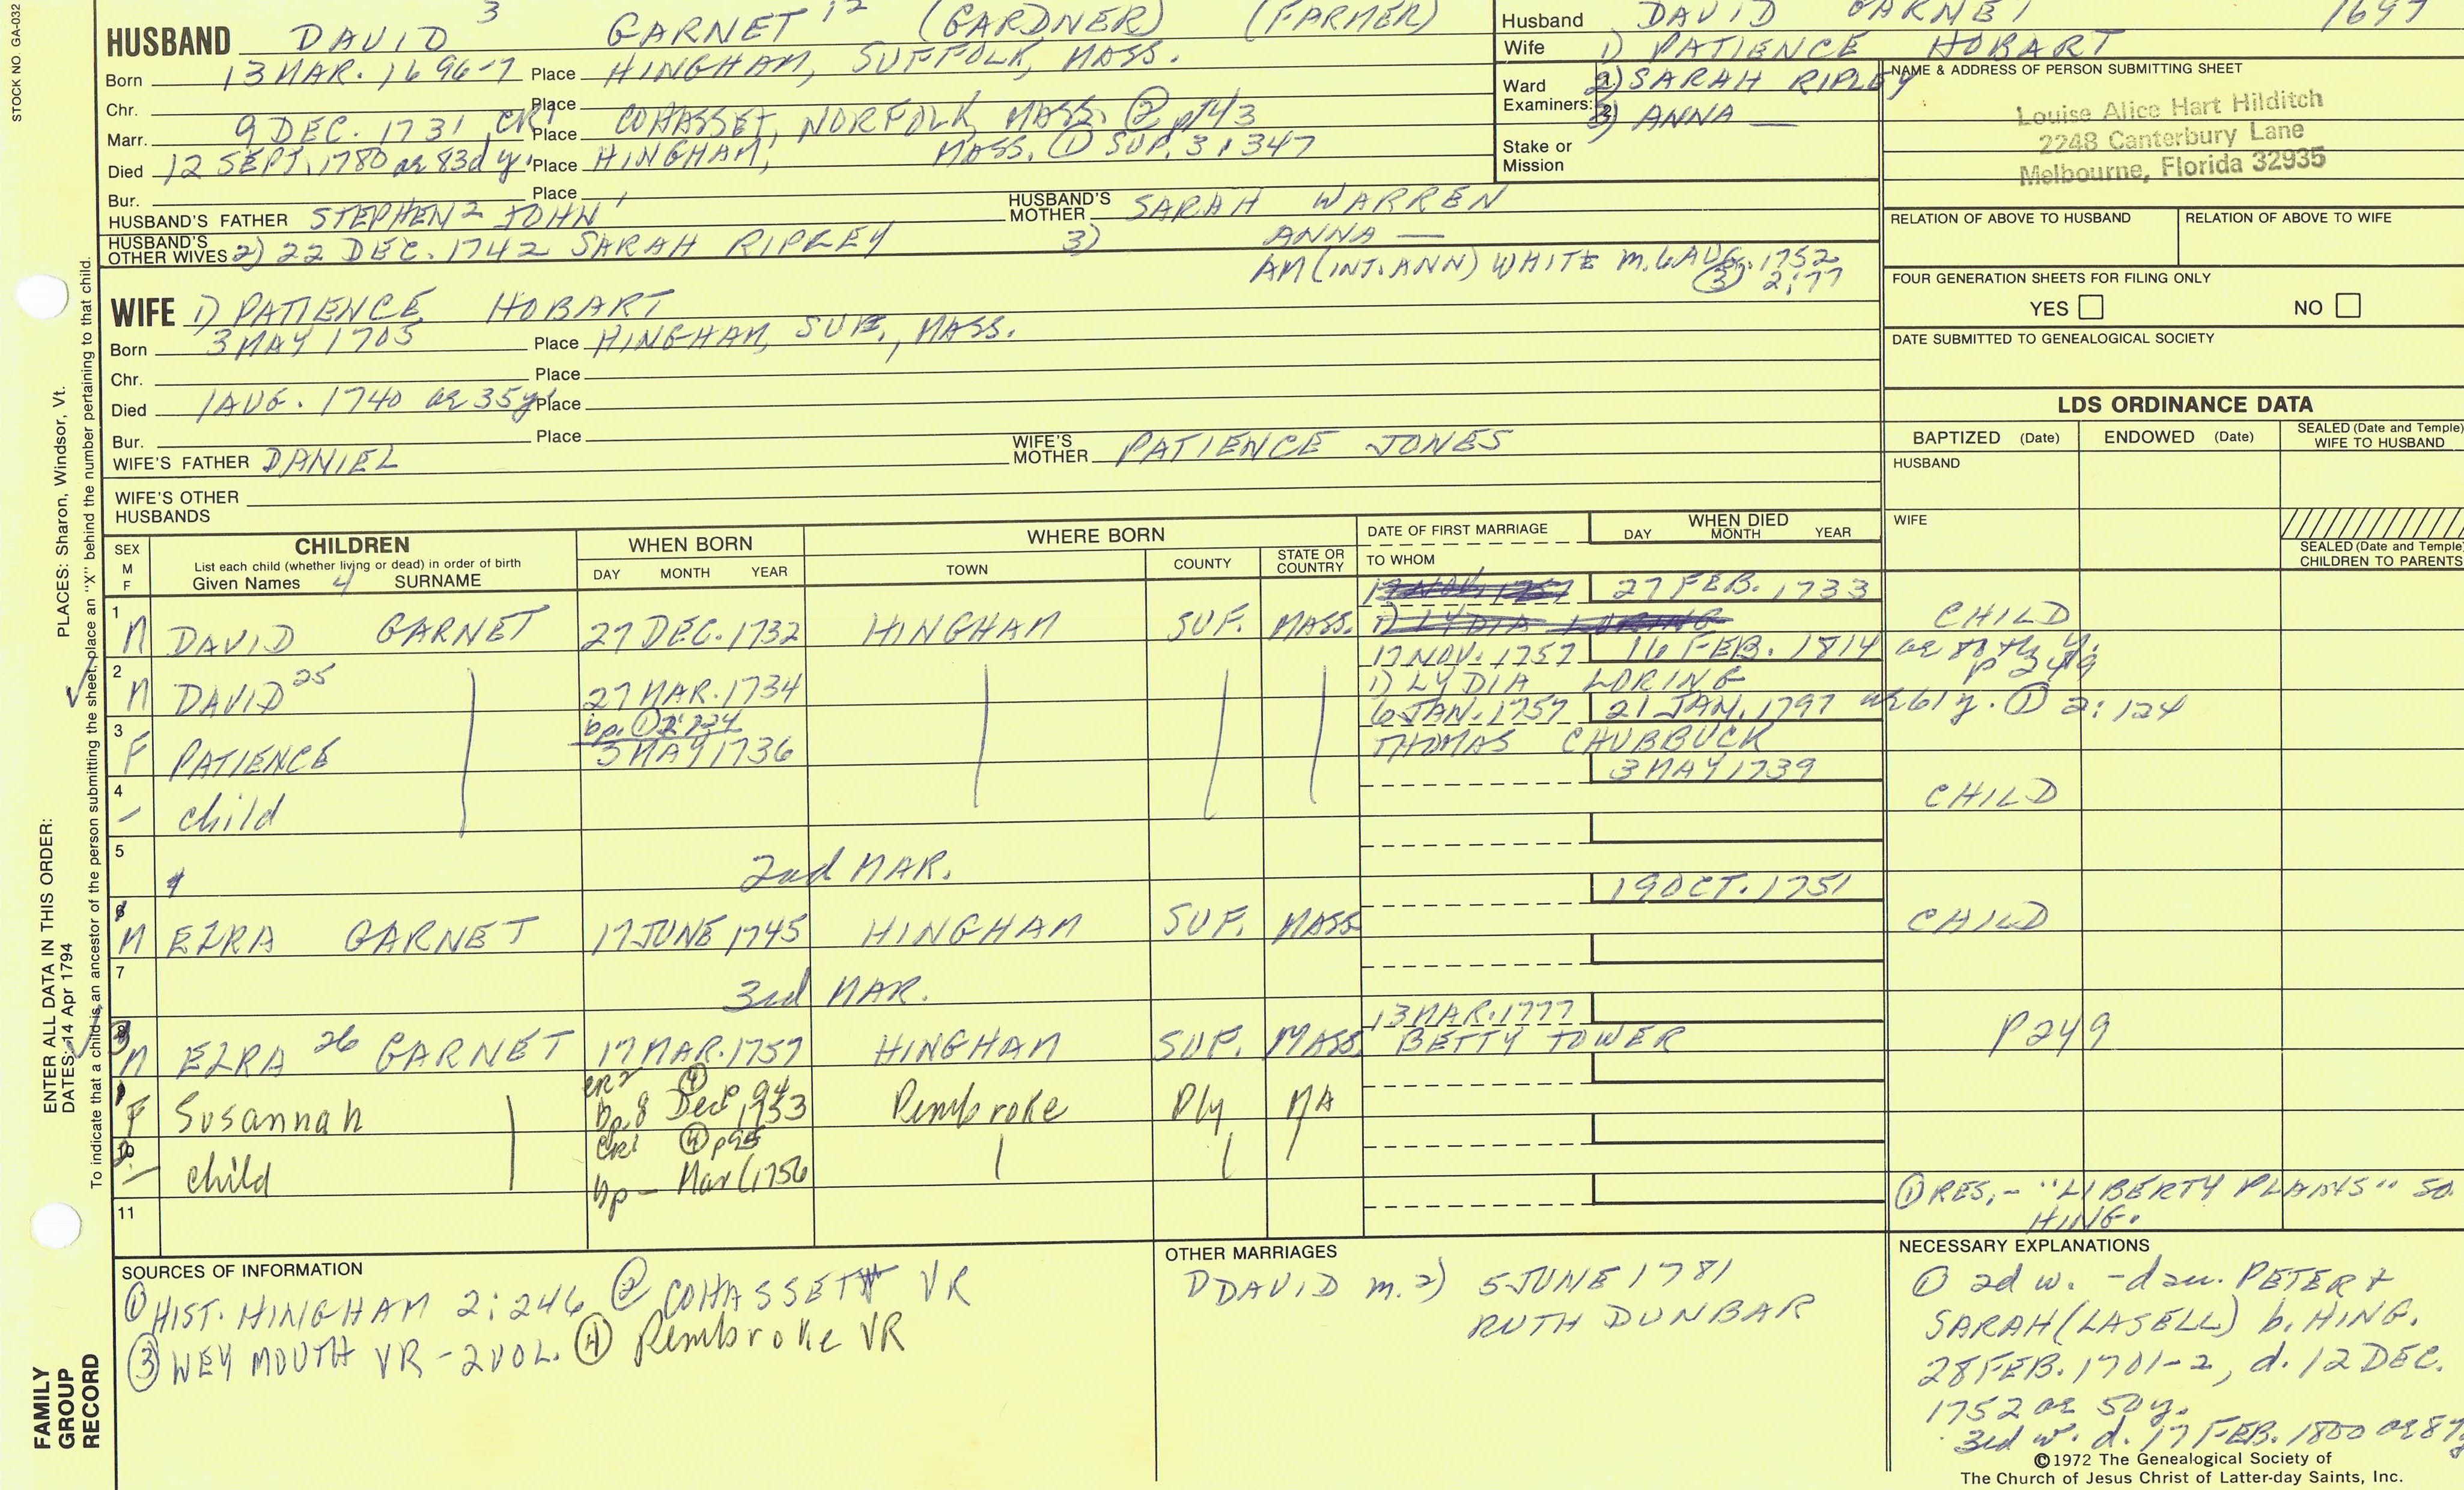 STOCK NO. GA-032
HUSBAND DAVID 3 GARNET 12 (GARDNER) (FARMER)
Born 13 MAR. 1696-7 Place HINGHAM, SUFFOLK, MASS.
Chr. Place
Marr. 9 DEC. 1731 CR1 Place COHASSET, NORFOLK, MASS. ② p143
Died 12 SEPT. 1780 ae 83d y. Place HINGHAM, MASS. ① SUP. 3:347
Bur. Place
HUSBAND'S FATHER STEPHEN 2 JOHN 1 HUSBAND'S MOTHER SARAH WARREN
HUSBAND'S OTHER WIVES 2) 22 DEC. 1742 SARAH RIPLEY 3) ANNA —
AM (INT. ANN) WHITE m. 6 AUG. 1752
③ 2:77
Husband DAVID GARNET 1697
Wife 1) PATIENCE HOBART
Ward Examiners: 1. 2) SARAH RIPLEY
2. 3) ANNA —
Stake or Mission
NAME & ADDRESS OF PERSON SUBMITTING SHEET
Louise Alice Hart Hilditch
2248 Canterbury Lane
Melbourne, Florida 32935
RELATION OF ABOVE TO HUSBAND RELATION OF ABOVE TO WIFE
FOUR GENERATION SHEETS FOR FILING ONLY
YES NO
DATE SUBMITTED TO GENEALOGICAL SOCIETY
WIFE 1) PATIENCE HOBART
Born 3 MAY 1705 Place HINGHAM, SUF., MASS.
Chr. Place
Died 1 AUG. 1740 ae 35 y. Place
Bur. Place
WIFE'S FATHER DANIEL WIFE'S MOTHER PATIENCE JONES
WIFE'S OTHER HUSBANDS
LDS ORDINANCE DATA
BAPTIZED (Date) ENDOWED (Date) SEALED (Date and Temple) WIFE TO HUSBAND
HUSBAND
WIFE
SEALED (Date and Temple) CHILDREN TO PARENTS
SEX M F CHILDREN WHEN BORN WHERE BORN DATE OF FIRST MARRIAGE WHEN DIED
List each child (whether living or dead) in order of birth
Given Names 4 SURNAME DAY MONTH YEAR TOWN COUNTY STATE OR COUNTRY TO WHOM DAY MONTH YEAR
17 NOV. 1757 27 FEB. 1733
1 M DAVID GARNET 27 DEC. 1732 HINGHAM SUF. MASS. 1) LYDIA LORING CHILD
17 NOV. 1757 16 FEB. 1814 ae 80th y.
2 M DAVID 25 27 MAR. 1734 1) LYDIA LORING p 249
bp. ① 2:124 6 JAN. 1757 21 JAN. 1797 ae 61 y. ① 2:124
3 F PATIENCE 3 MAY 1736 THOMAS CHUBBUCK
3 MAY 1739
4 – child CHILD
5 2nd MAR.
19 OCT. 1751
6 M EZRA GARNET 17 JUNE 1745 HINGHAM SUF. MASS CHILD
7 3rd MAR.
13 MAR. 1777
3 M EZRA 26 GARNET 17 MAR. 1757 HINGHAM SUF. MASS. BETTY TOWER P249
CR2 ④ p 94
1 F Susannah bp. 8 Dec 1753 Pembroke Ply MA
CR1 ④ p95
2 – child bp – Mar (1756
① RES. – "LIBERTY PLAINS" SO. HING.
11
SOURCES OF INFORMATION
① HIST. HINGHAM 2:246 ② COHASSET VR
③ WEYMOUTH VR – 2 VOL. ④ Pembroke VR
OTHER MARRIAGES
DAVID m. 2) 5 JUNE 1781
RUTH DUNBAR
NECESSARY EXPLANATIONS
① 2d w. – dau. PETER &
SARAH (LASELL) b. HING.
28 FEB. 1701-2, d. 12 DEC.
1752 ae 50 y.
3rd w. d. 17 FEB. 1800 ae 87
©1972 The Genealogical Society of
The Church of Jesus Christ of Latter-day Saints, Inc.
PLACES: Sharon, Windsor, Vt.
To indicate that a child is an ancestor of the person submitting the sheet, place an "X" behind the number pertaining to that child.
ENTER ALL DATA IN THIS ORDER:
DATES: 14 Apr 1794
FAMILY GROUP RECORD